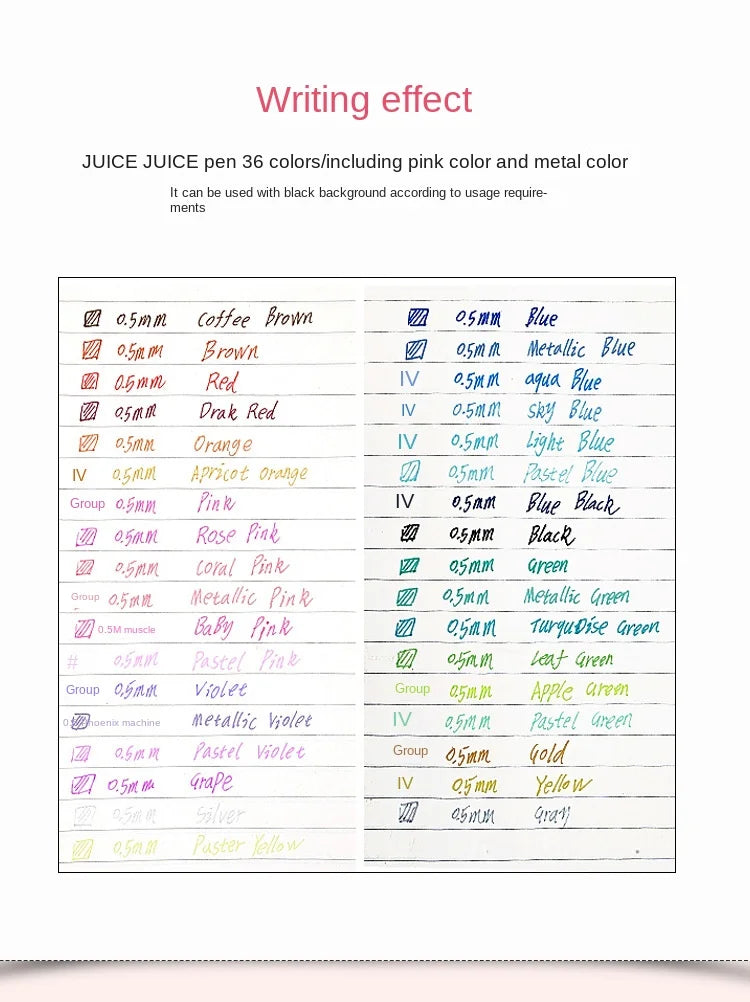 Writing effect
JUICE JUICE pen 36 colors/including pink color and metal color
It can be used with black background according to usage require-
ments
0.5mm Coffee Brown
0.5mm Brown
0.5mm Red
0.5mm Drak Red
0.5mm Orange
IV 0.5mm Apricot orange
Group 0.5mm Pink
0.5mm Rose Pink
0.5mm Coral Pink
Group 0.5mm Metallic Pink
0.5M muscle BaBy Pink
# 0.5mm Pastel Pink
Group 0.5mm Violet
Phoenix machine Metallic Violet
0.5mm Pastel Violet
0.5mm Grape
0.5mm Silver
0.5mm Paster Yellow
0.5mm Blue
0.5mm Metallic Blue
IV 0.5mm aqua Blue
IV 0.5mm sky Blue
IV 0.5mm Light Blue
0.5mm Pastel Blue
IV 0.5mm Blue Black
0.5mm Black
0.5mm Green
0.5mm Metallic Green
0.5mm TurquDise Green
0.5mm Leaf Green
Group 0.5mm Apple Green
IV 0.5mm Pastel Green
Group 0.5mm Gold
IV 0.5mm Yellow
0.5mm Gray